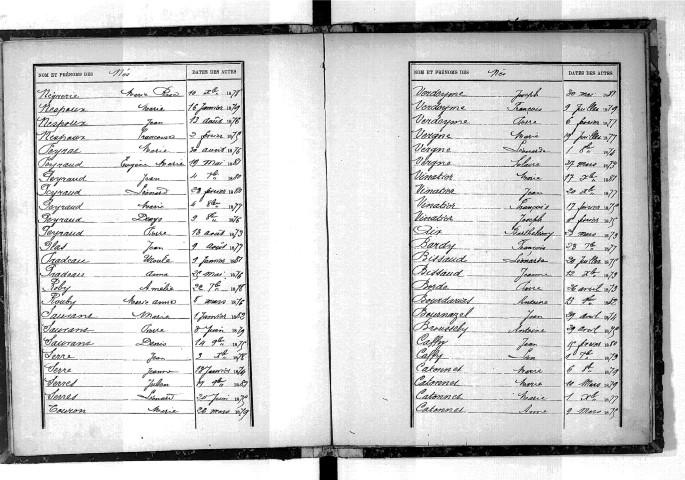 NOM ET PRÉNOMS DES Nés DATES DES ACTES
Négrerie Marie 10 Xbre 1878
Nespoux Marie 16 janvier 1879
Nespoux Jean 13 août 1876
Nespoux Françoise 2 février 1875
Peyrat Marie 30 août 1876
Peyraud Eugène Marie 19 mai 1883
Peyraud Jean 4 7bre 1880
Peyraud Léonard 28 février 1880
Peyraud Marie 6 8bre 1877
Peyraud 9 8bre 1876
Peyraud Pierre 13 août 1873
Plas Jean 9 août 1877
Pradeau 9 janvier 1881
Pradeau Anna 25 mai 1876
Roby Amélie 22 7bre 1878
Marie 5 mars 1876
Sauvans Marie 1 janvier 1883
Sauvans Pierre 8 juin 1879
Sauvans Denis 14 9bre 1875
Serre Jean 3 Xbre 1878
Serre Jeanne 18 janvier 1876
Serres Julien 11 9bre 1881
Serres Léonard 20 juin 1875
Touron Marie 22 mars 1879
NOM ET PRÉNOMS DES Nés DATES DES ACTES
Verdeyme Joseph 30 mai 1881
Verdeyme François 9 juillet 1879
Verdeyme Pierre 6 février 1877
Vergne Marie 19 juillet 1877
Vergne Léonarde 1 8bre 1876
Vergne 27 mars 1873
Vinatier Marie 17 Xbre 1881
Vinatier Jean 20 Xbre 1877
Vinatier François 17 février 1875
Vinatier Joseph 8 février 1875
Aix Barthélemy 23 mars 1873
Bardy François 28 7bre 1877
Bissaud Léonarde 20 juillet 1875
Bissaud Jeanne 12 Xbre 1873
Borde Pierre 26 avril 1873
Antoine 23 9bre 1882
Bournazel Jean 29 avril 1876
Antoine 29 avril 1875
Caffy Jean 15 février 1880
Caffy 1er 7bre 1873
Catonnet Marie 6 8bre 1879
Catonnet Marie 10 Mars 1879
Catonnet Marie 1 Xbre 1877
Catonnet Anne 9 Mars 1875